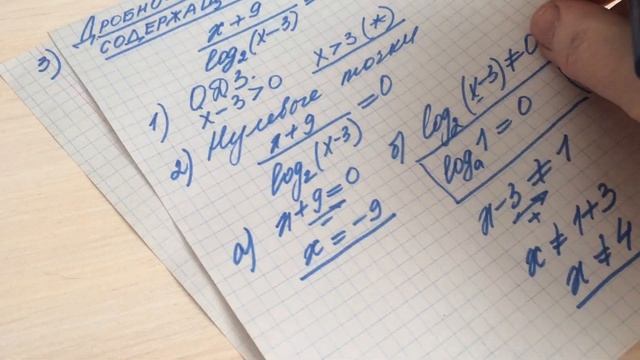 3) ДРОБНО
СОДЕРЖАЩ
x+9
log₂(x-3)
1) ОДЗ.
x-3>0 x>3 (*)
2) Нулевые точки
x+9 / log₂(x-3) = 0
а) x+9=0
x=-9
б) log₂(x-3)≠0
logₐ1=0
x-3≠1
x≠1+3
x≠4